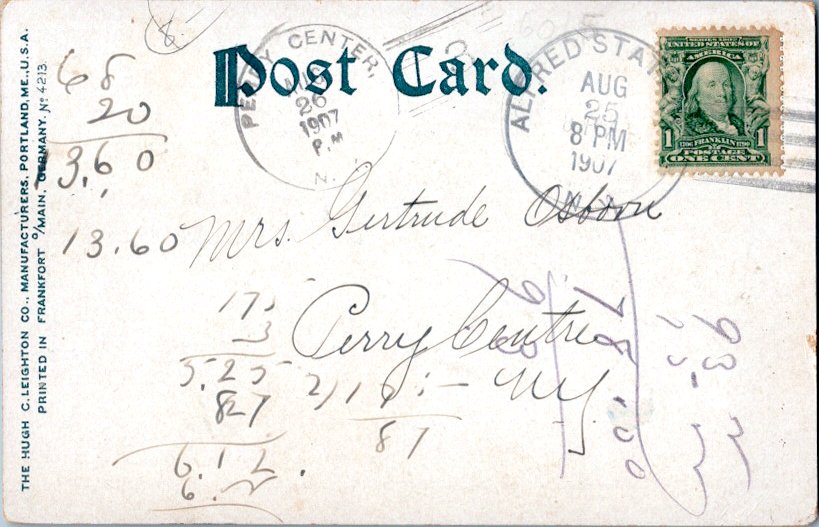 Post Card.
THE HUGH C. LEIGHTON CO., MANUFACTURERS, PORTLAND, ME., U.S.A.
PRINTED IN FRANKFORT O/MAIN, GERMANY. No 4213.
PERRY CENTER,
AUG
26
1907
P.M
N.Y.
ALFRED STATION
AUG
25
8 PM
1907
N.Y.
SERIES 1902
UNITED STATES OF
AMERICA
1 1790 FRANKLIN 1790 1
POSTAGE
ONE CENT
68
20
3,60
13.60
Mrs. Gertrude Osborn
Perry Centre
N.Y.
175
3
5.25
87
6.12
87